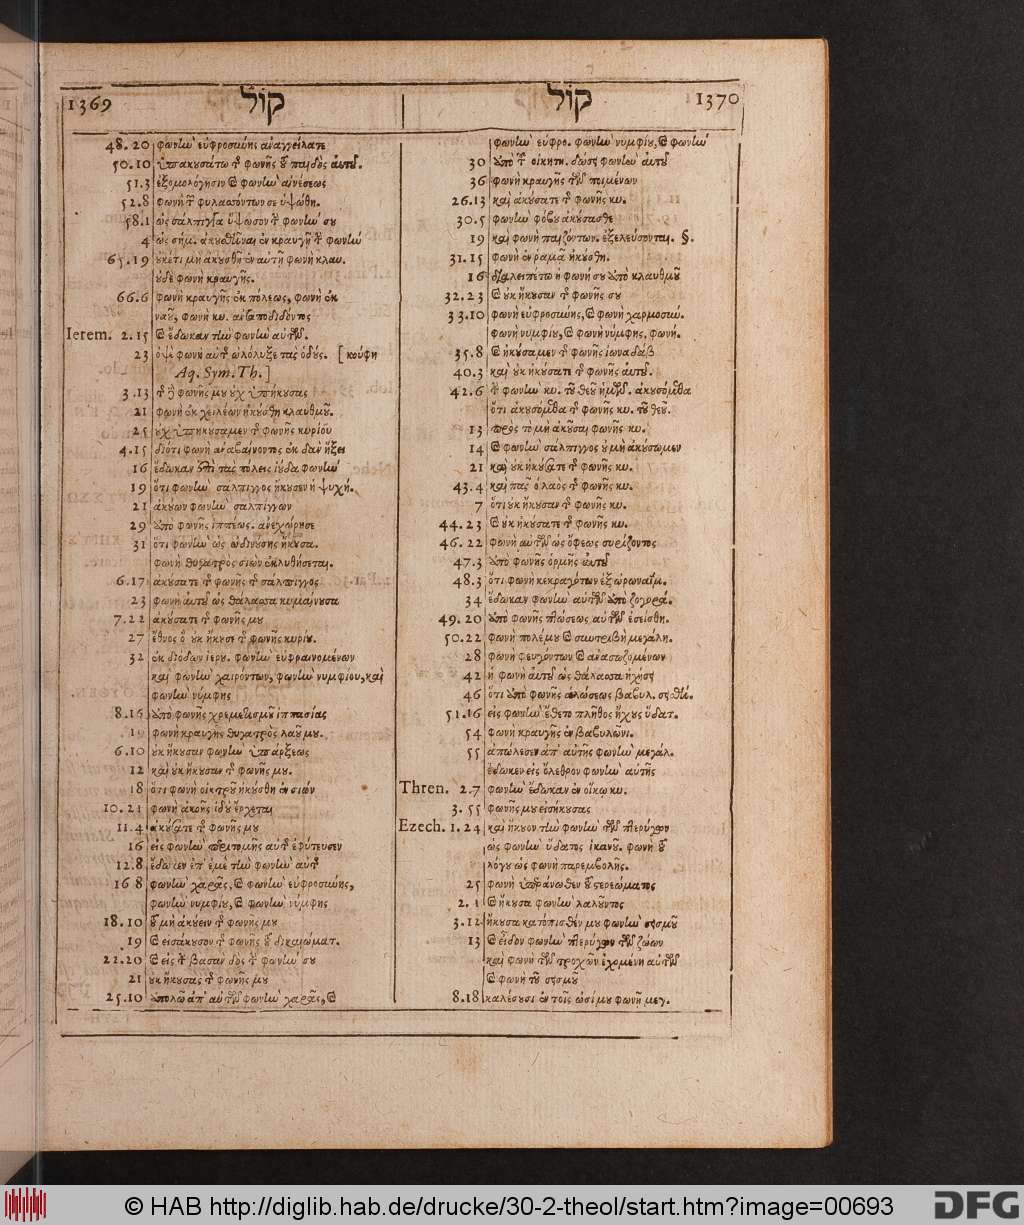 1369 קול
48. 20 φωνὴν εὐφροσύνης ἀναγγείλατε
50. 10 ὑπακουσάτω τῆς φωνῆς τοῦ παιδὸς αὐτοῦ.
51. 3 ἐξομολόγησιν καὶ φωνὴν αἰνέσεως
52. 8 φωνὴ τῶν φυλασσόντων σε ὑψώθη.
58. 1 ὡς σάλπιγγα ὕψωσον τὴν φωνήν σου
4 ὡς σήμ. ἀκουσθῆναι ἐν κραυγῇ τὴν φωνὴν
65. 19 οὐκέτι μὴ ἀκουσθῇ ἐν αὐτῇ φωνὴ κλαυ.
οὐδὲ φωνὴ κραυγῆς.
66. 6 φωνὴ κραυγῆς ἐκ πόλεως, φωνὴ ἐκ
ναοῦ, φωνὴ κυ. ἀνταποδιδόντος
Ierem. 2. 15 καὶ ἔδωκαν τὴν φωνὴν αὐτῶν.
23 ὀψὲ φωνὴ αὐτῆς ὠλόλυξε τὰς ὁδούς. [κούφη
Aq. Sym. Th.]
3. 13 τῆς δὲ φωνῆς μου οὐχ ὑπήκουσας
21 φωνὴ ἐκ χειλέων ἠκούσθη κλαυθμοῦ.
25 οὐχ ὑπηκούσαμεν τῆς φωνῆς κυρίου
4. 15 διότι φωνὴ ἀναβαίνοντος ἐκ δαν ἥξει
16 ἔδωκαν ἐπὶ τὰς πόλεις ἰούδα φωνὴν
19 ὅτι φωνὴν σάλπιγγος ἤκουσεν ἡ ψυχή.
21 ἀκούων φωνὴν σαλπίγγων
29 ἀπὸ φωνῆς ἱππέως. ἀνεχώρησε
31 ὅτι φωνὴν ὡς ὠδινούσης ἤκουσα.
φωνὴ θυγατρὸς σιὼν ἐκλυθήσεται.
6. 17 ἀκούσατε τῆς φωνῆς τῆς σάλπιγγος
23 φωνὴ αὐτοῦ ὡς θάλασσα κυμαίνουσα
7. 22 ἀκούσατε τῆς φωνῆς μου
27 ἔθνος ὃ οὐκ ἤκουσε τῆς φωνῆς κυρίου.
32 ἐκ διόδων ἱερου. φωνὴν εὐφραινομένων
καὶ φωνὴν χαιρόντων, φωνὴν νυμφίου, καὶ
φωνὴν νύμφης
8. 16 ἀπὸ φωνῆς χρεμετισμοῦ ἱππασίας
19 φωνὴ κραυγῆς θυγατρὸς λαοῦ μου.
6. 10 οὐκ ἤκουσαν φωνὴν ὑπάρξεως
12 καὶ οὐκ ἤκουσαν τῆς φωνῆς μου.
18 ὅτι φωνὴ οἴκτρου ἠκούσθη ἐν σιών
10. 21 φωνὴ ἀκοῆς ἰδοὺ ἔρχεται
11. 4 ἀκούσατε τῆς φωνῆς μου
16 εἰς φωνὴν περιτομῆς αὐτῆς ἐφύτευσεν
12. 8 ἔδωκεν ἐπ' ἐμὲ τὴν φωνὴν αὐτῆς
16 8 φωνὴν χαρᾶς, καὶ φωνὴν εὐφροσύνης,
φωνὴν νυμφίου, καὶ φωνὴν νύμφης
18. 10 τοῦ μὴ ἀκούειν τῆς φωνῆς μου
19 καὶ εἰσάκουσον τῆς φωνῆς τοῦ δικαιώματ.
22. 20 καὶ εἰς τὴν βασαν δὸς τὴν φωνήν σου
21 οὐκ ἤκουσας τῆς φωνῆς μου
25. 10 ἀπολῶ ἀπ' αὐτῶν φωνὴν χαρᾶς, καὶ
קול 1370
φωνὴν εὐφρο. φωνὴν νυμφίου, καὶ φωνὴν
30 ἀπὸ τοῦ οἰκητη. δώσει φωνὴν αὐτοῦ
36 φωνὴ κραυγῆς τῶν ποιμένων
26. 13 καὶ ἀκούσατε τῆς φωνῆς κυ.
30. 5 φωνὴν φόβου ἀκούσεσθε
19 καὶ φωνὴ παιζόντων. ἐξελεύσονται. §.
31. 15 φωνὴ ἐν ῥαμᾶ ἠκούσθη.
16 διαλειπέτω ἡ φωνή σου ἀπὸ κλαυθμοῦ
32. 23 καὶ οὐκ ἤκουσαν τῆς φωνῆς σου
33. 10 φωνὴ εὐφροσύνης, καὶ φωνὴ χαρμοσύν.
φωνὴ νυμφίου, καὶ φωνὴ νύμφης. φωνή.
35. 8 καὶ ἠκούσαμεν τῆς φωνῆς ἰωναδάβ
40. 3 καὶ οὐκ ἠκούσατε τῆς φωνῆς αὐτοῦ.
42. 6 τὴν φωνὴν κυ. τοῦ θεοῦ ἡμῶν. ἀκουσόμεθα
ὅτι ἀκουσόμεθα τῆς φωνῆς κυ. τοῦ θεοῦ.
13 πρὸς τὸ μὴ ἀκοῦσαι φωνῆς κυ.
14 καὶ φωνὴν σάλπιγγος οὐ μὴ ἀκούσωμεν
21 καὶ οὐκ ἠκούσατε τῆς φωνῆς κυ.
43. 4 καὶ πᾶς ὁ λαὸς τῆς φωνῆς κυ.
7 ὅτι οὐκ ἤκουσαν τῆς φωνῆς κυ.
44. 23 καὶ οὐκ ἠκούσατε τῆς φωνῆς κυ.
46. 22 φωνὴ αὐτῶν ὡς ὄφεως συρίζοντος
47. 3 ἀπὸ φωνῆς ὁρμῆς αὐτοῦ
48. 3 ὅτι φωνὴ κεκραγότων ἐξ ὠρωναΐμ.
34 ἔδωκαν φωνὴν αὐτῶν ἀπὸ ζογορά.
49. 20 ἀπὸ φωνῆς πτώσεως αὐτῶν ἐσείσθη.
50. 22 φωνὴ πολέμου καὶ συντριβὴ μεγάλη.
28 φωνὴ φευγόντων καὶ ἀνασωζομένων
42 ἡ φωνὴ αὐτοῦ ὡς θάλασσα ἠχήσει
46 ὅτι ἀπὸ φωνῆς ἁλώσεως βαβυλ. σεισθή.
51. 16 εἰς φωνὴν ἔθετο πλῆθος ἤχους ὕδατ.
54 φωνὴ κραυγῆς ἐν βαβυλῶνι.
55 ἀπώλεσεν ἀπ' αὐτῆς φωνὴν μεγάλ.
ἔδωκεν εἰς ὄλεθρον φωνὴν αὐτῆς
Thren. 2. 7 φωνὴν ἔδωκαν ἐν οἴκῳ κυ.
3. 55 φωνῆς μου εἰσήκουσας
Ezech. 1. 24 καὶ ἤκουον τὴν φωνὴν τῶν πτερύγων
ὡς φωνὴν ὕδατος ἱκανοῦ. φωνὴ τοῦ
λόγου ὡς φωνὴ παρεμβολῆς.
25 φωνὴ ὑπεράνωθεν τοῦ στερεώματος
2. 1 καὶ ἤκουσα φωνὴν λαλοῦντος
3. 12 ἤκουσα κατόπισθέν μου φωνὴν σεισμοῦ
13 καὶ εἶδον φωνὴν πτερύγων τῶν ζώων
καὶ φωνὴ τῶν τροχῶν ἐχομένη αὐτῶν
καὶ φωνὴ τοῦ σεισμοῦ
8. 18 καλέσουσι ἐν τοῖς ὠσί μου φωνῇ μεγ.
© HAB http://diglib.hab.de/drucke/30-2-theol/start.htm?image=00693 DFG